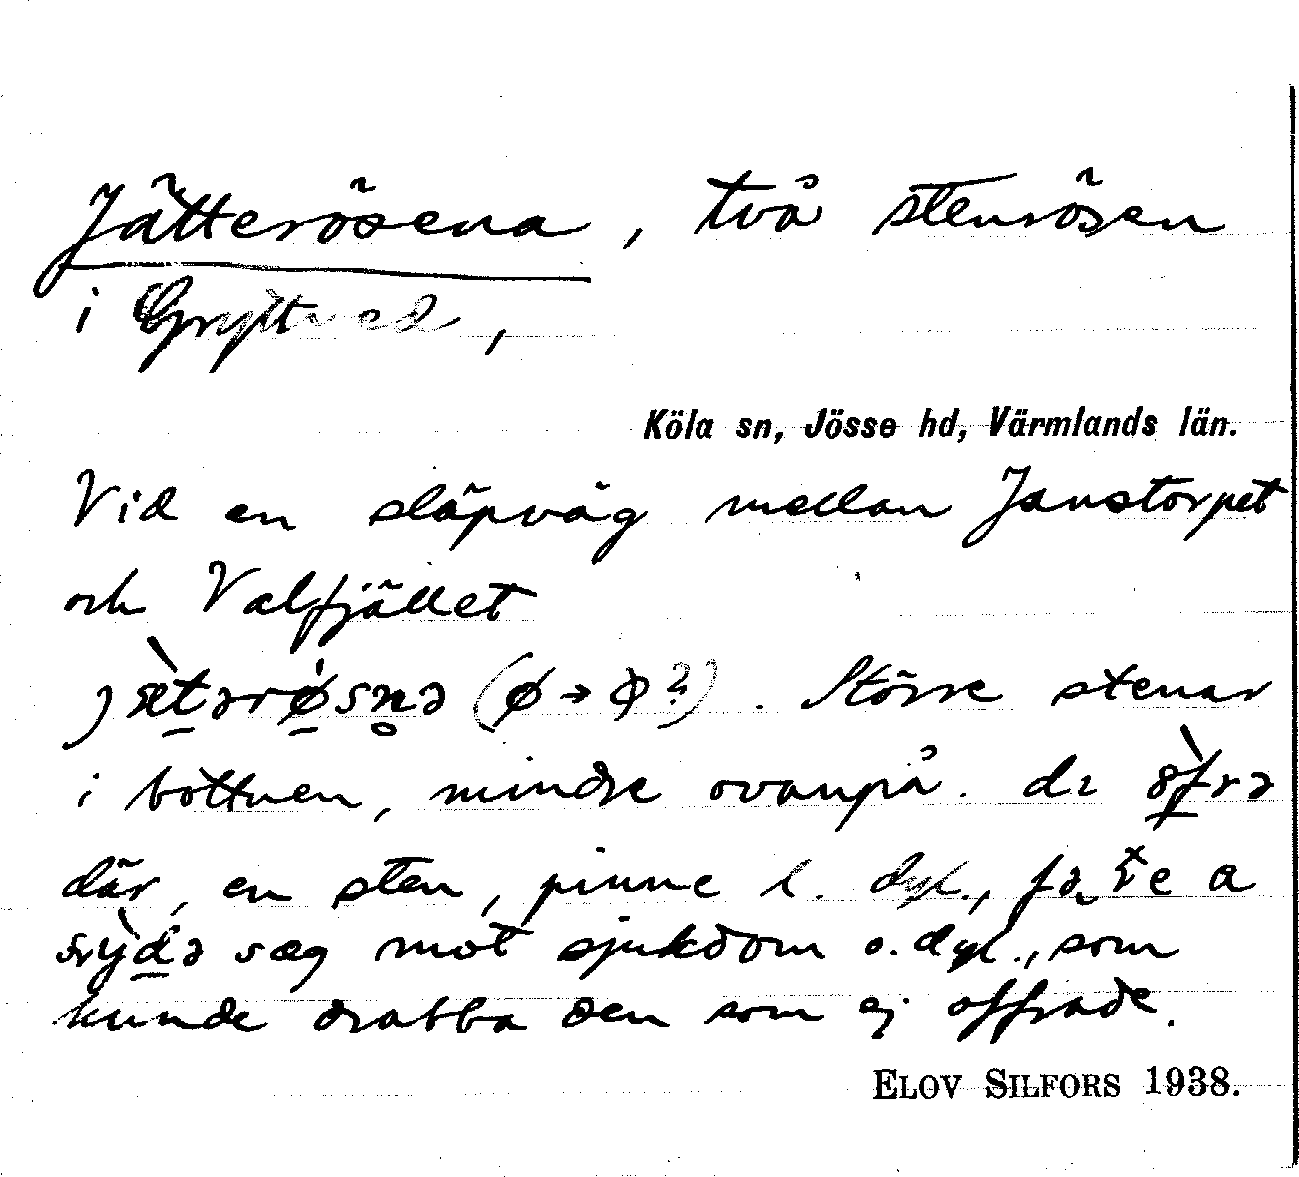 Jätterösena, två stenrösen
i Gryttved,
Köla sn, Jösse hd, Värmlands län.
Vid en släpväg mellan Janstorpet
och Valfjället
(ø → ?). Större stenar
i bottnen, mindre ovanpå. dɩ
där, en sten, pinne l. dyl., a
sæg mot sjukdom o. dyl., som
kunde drabba den som ej offrade.
ELOV SILFORS 1938.